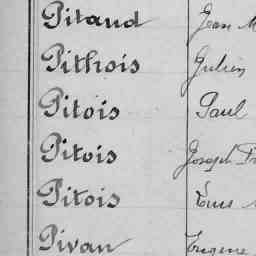 Pitaud Jean M
Pithois Julien
Pitois Paul
Pitois Joseph Fr
Pitois
Pivan Eugene